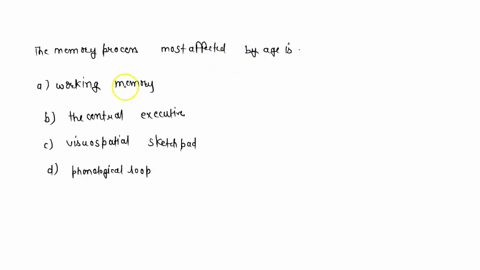 The memory process most affected by age is.
a) working memory
b) the central executive
c) visuospatial sketchpad
d) phonological loop